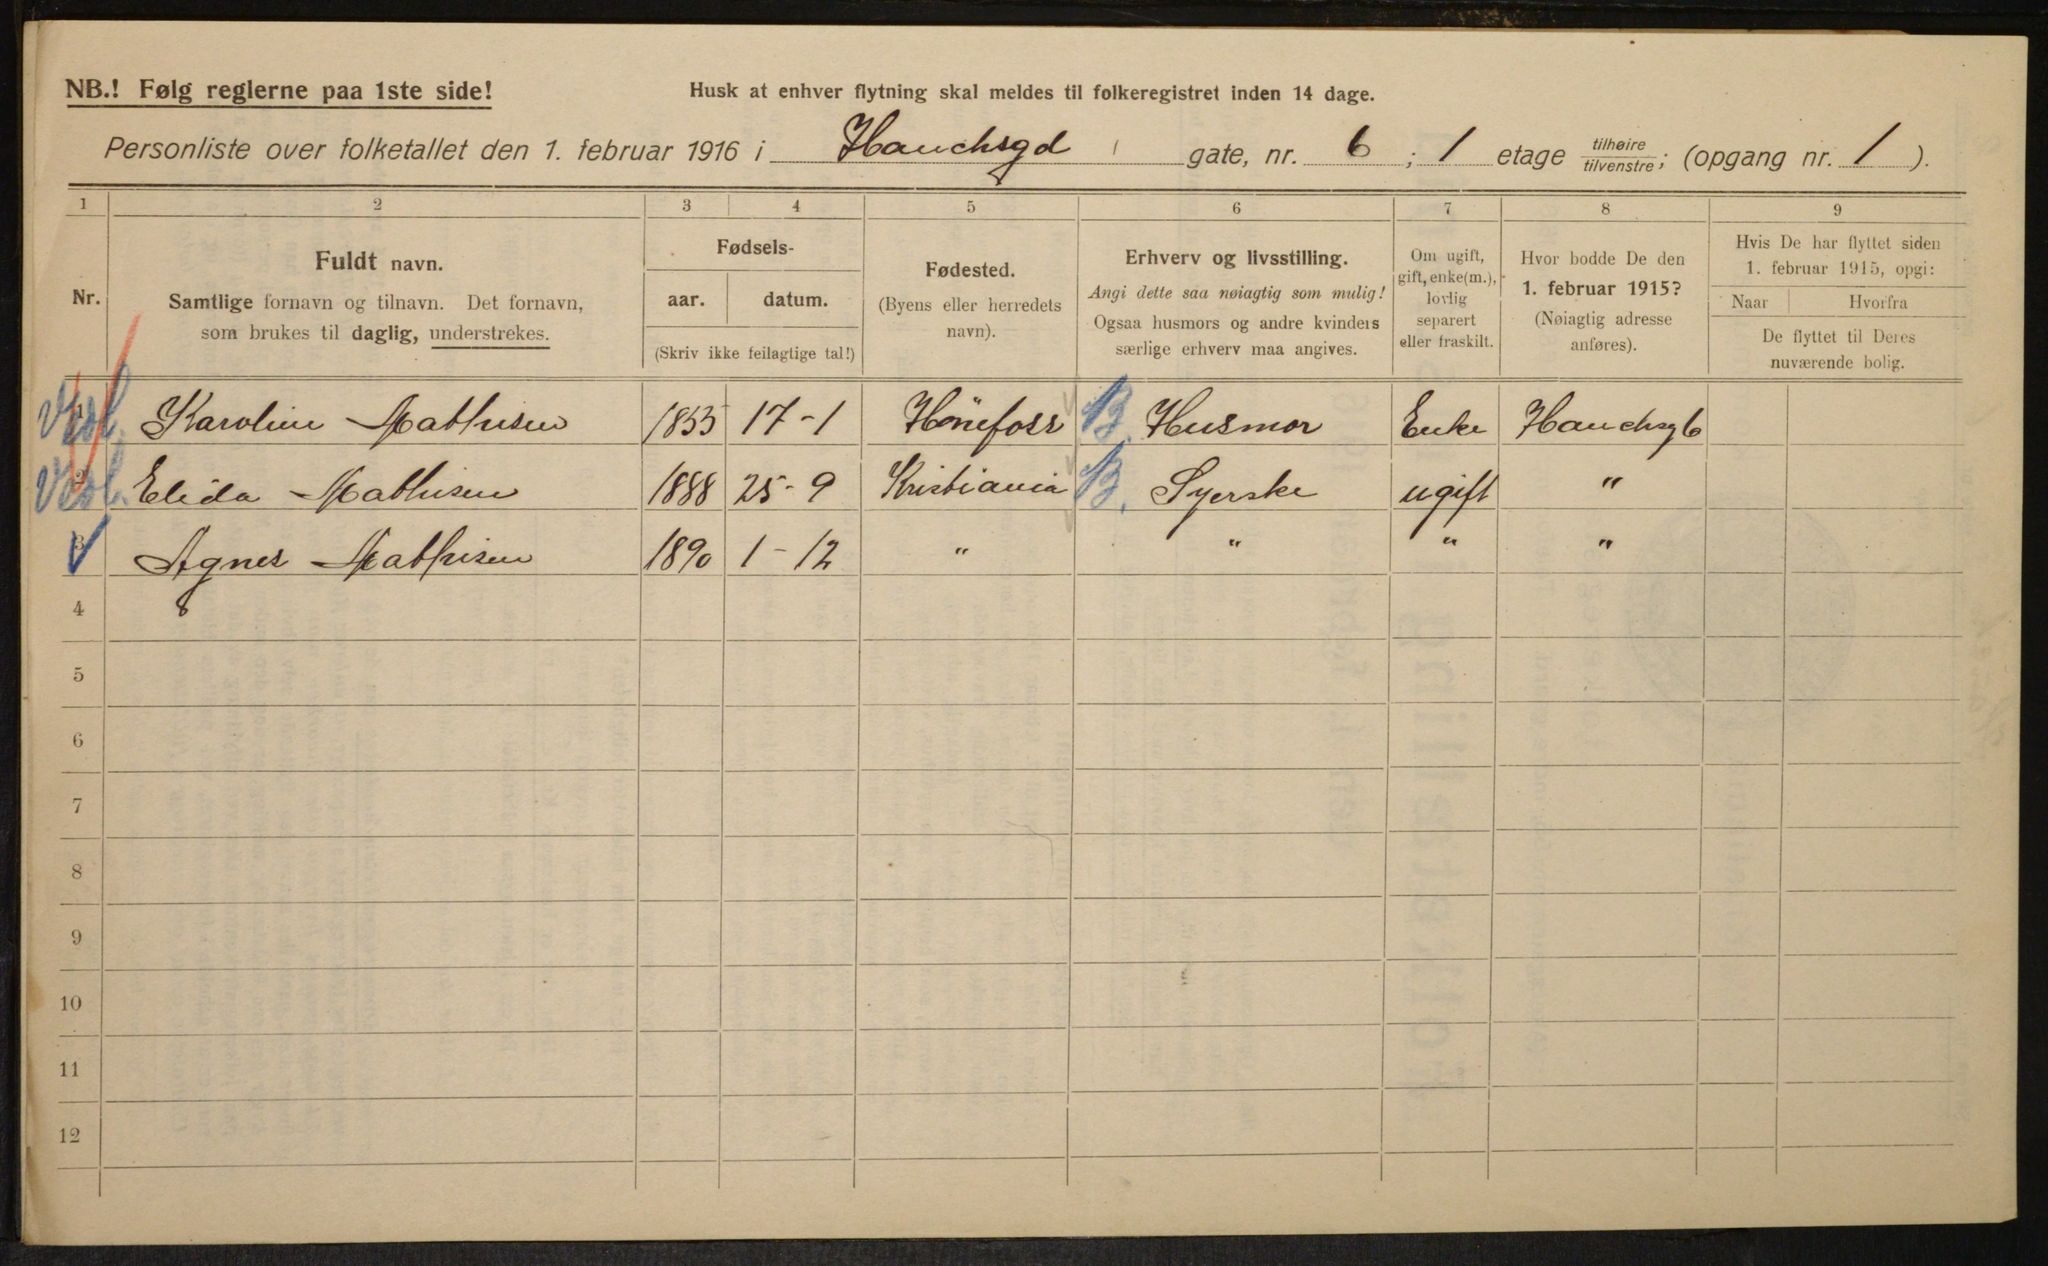 NB.! Følg reglerne paa 1ste side! Husk at enhver flytning skal meldes til folkeregistret inden 14 dage.
Personliste over folketallet den 1. februar 1916 i Hauchsgd gate, nr. 6 ; 1 etage tilhøire/tilvenstre; (opgang nr. 1 ).
1 2 3 4 5 6 7 8 9
Nr.
Fuldt navn.
Samtlige fornavn og tilnavn. Det fornavn,
som brukes til daglig, understrekes.
Fødsels-
aar. datum.
(Skriv ikke feilagtige tal!)
Fødested.
(Byens eller herredets
navn).
Erhverv og livsstilling.
Angi dette saa nøiagtig som mulig!
Ogsaa husmors og andre kvinders
særlige erhverv maa angives.
Om ugift,
gift, enke(m.),
lovlig
separert
eller fraskilt.
Hvor bodde De den
1. februar 1915?
(Nøiagtig adresse
anføres).
Hvis De har flyttet siden
1. februar 1915, opgi:
Naar Hvorfra
De flyttet til Deres
nuværende bolig.
1 Karoline Mathisen 1853 17-1 Hönefoss B. Husmor Enke Hauchsg 6
2 Elida Mathisen 1888 25-9 Kristiania B. Syerske ugift "
3 Agnes Mathisen 1890 1-12 " " " "
4
5
6
7
8
9
10
11
12